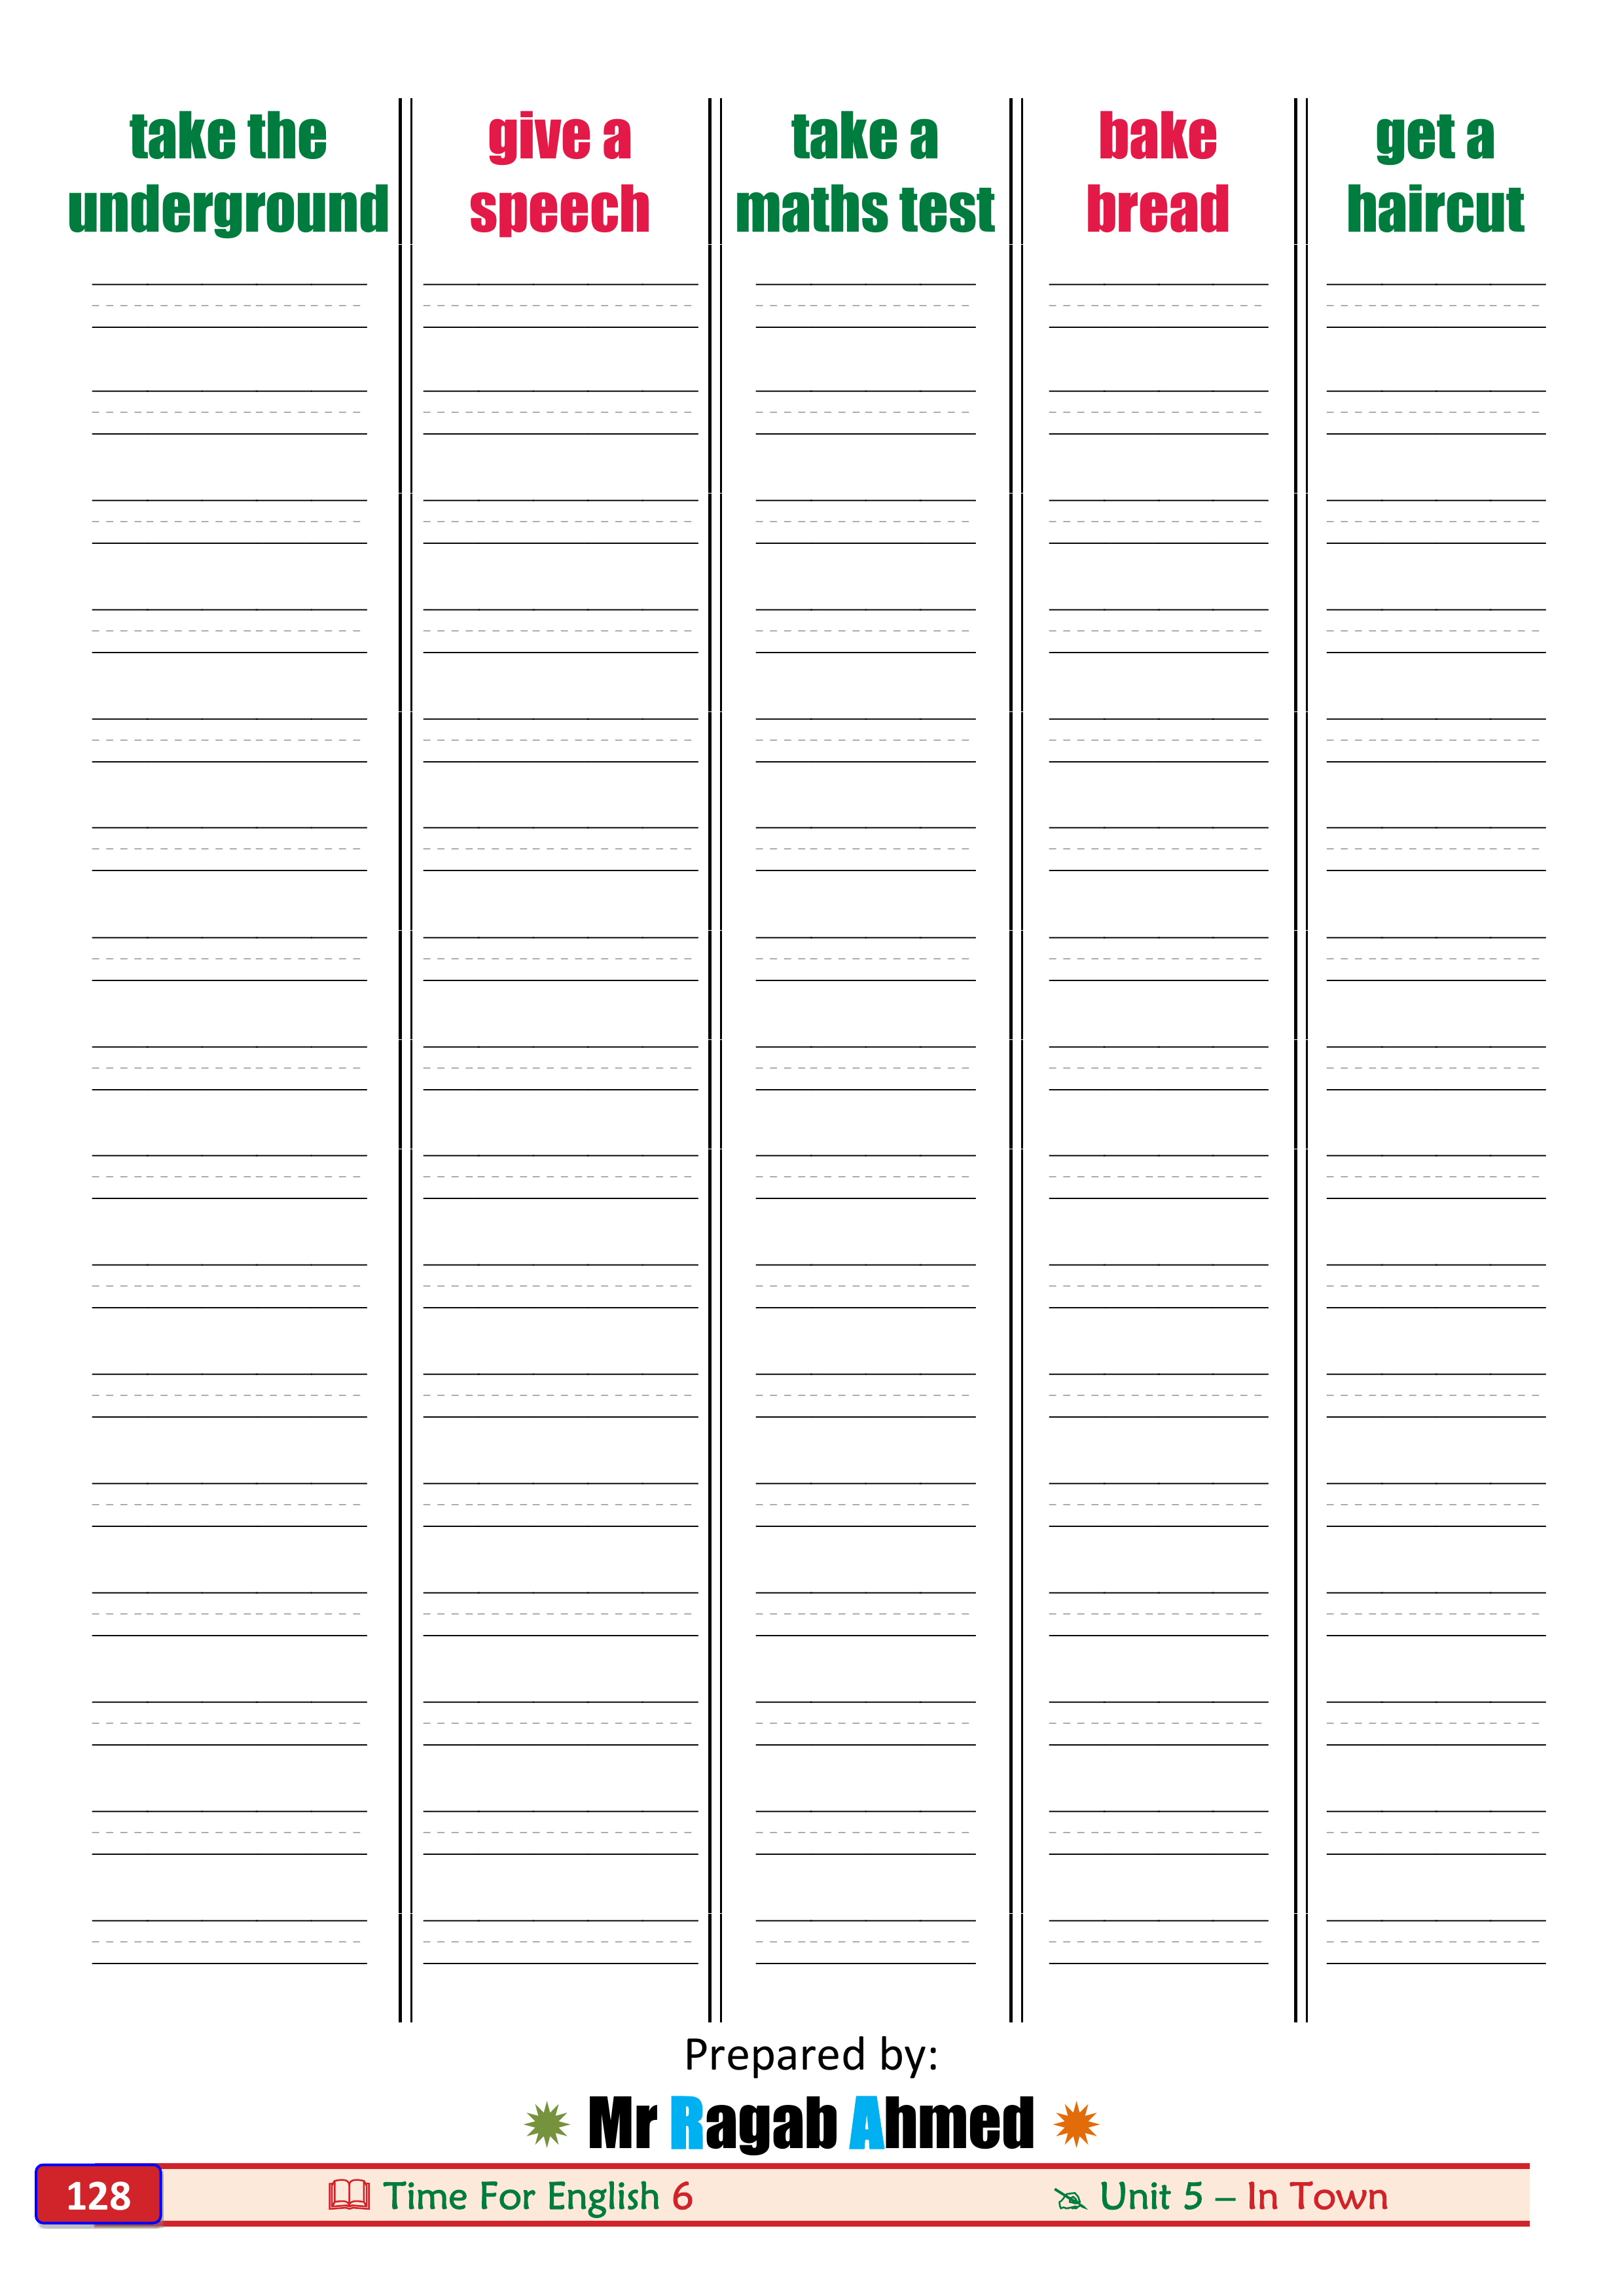 take the
underground
give a
speech
take a
maths test
bake
bread
get a
haircut
Prepared by:
Mr Ragab Ahmed
128
Time For English 6
Unit 5 – In Town